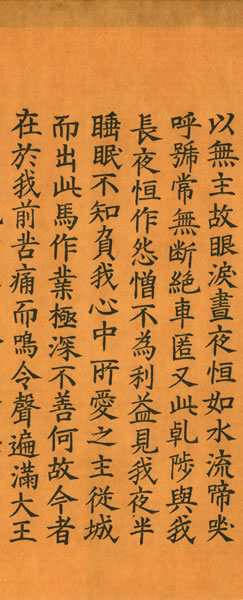 以無主故眼淚晝夜恒如水流啼哭
呼號常無断絶車匿又此乹陟與我
長夜恒作怨憎不為利益見我夜半
睡眠不知負我心中所愛之主従城
而出此馬作業極深不善何故今者
在於我前苦痛而鳴令聲遍滿大王